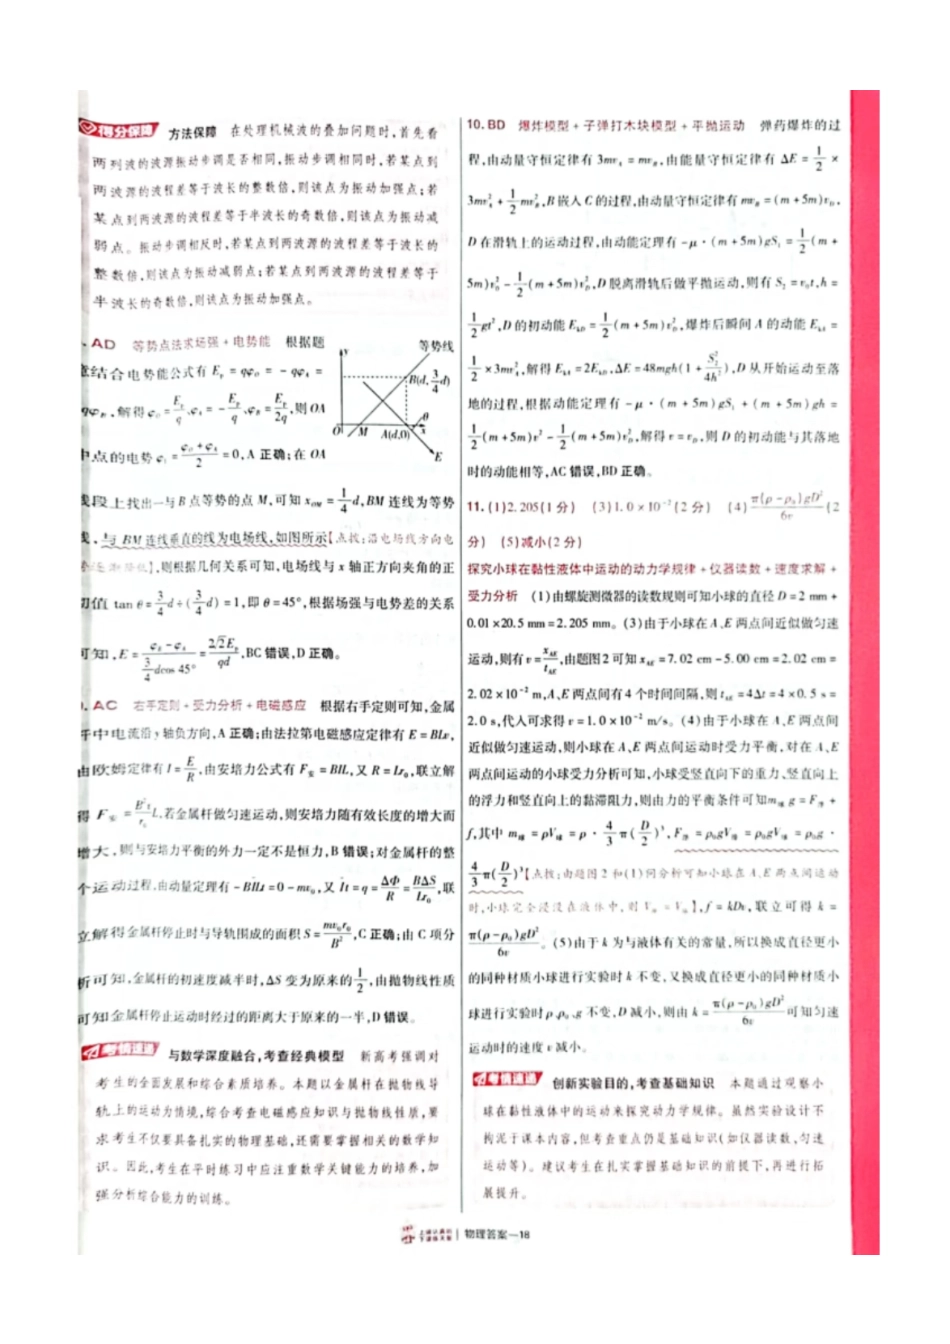 得分保障 方法保障 在处理机械波的叠加问题时,首先看
两列波的波源振动步调是否相同,振动步调相同时,若某点到
两波源的波程差等于波长的整数倍,则该点为振动加强点;若
某点到两波源的波程差等于半波长的奇数倍,则该点为振动减
弱点。振动步调相反时,若某点到两波源的波程差等于波长的
整数倍,则该点为振动减弱点;若某点到两波源的波程差等于
半波长的奇数倍,则该点为振动加强点。
AD 等势点法求场强+电势能 根据题
意结合电势能公式有 Eₚ = qφ_O = -qφ_A =
qφ_B,解得 φ_O = Eₚ/q,φ_A = -Eₚ/q,φ_B = Eₚ/2q,则 OA
中点的电势 φ₁ = (φ_O+φ_A)/2 = 0,A 正确;在 OA
等势线
y
B(d, 3/4 d)
θ
O M A(d,0) x
E
线段上找出一与 B 点等势的点 M,可知 x_OM = 1/4 d,BM 连线为等势
线,与 BM 连线垂直的线为电场线,如图所示【点拨:沿电场线方向电
势逐渐降低】,则根据几何关系可知,电场线与 x 轴正方向夹角的正
切值 tan θ = 3/4 d÷(3/4 d) = 1,即 θ=45°,根据场强与电势差的关系
可知,E = (φ_B-φ_A)/(3/4 dcos 45°) = 2√2Eₚ/qd,BC 错误,D 正确。
AC 右手定则+受力分析+电磁感应 根据右手定则可知,金属
杆中电流沿 y 轴负方向,A 正确;由法拉第电磁感应定律有 E = BLv,
由欧姆定律有 I = E/R,由安培力公式有 F安 = BIL,又 R = Lr₀,联立解
得 F安 = B²v/r₀ L,若金属杆做匀速运动,则安培力随有效长度的增大而
增大,则与安培力平衡的外力一定不是恒力,B 错误;对金属杆的整
个运动过程,由动量定理有 -BIlt = 0-mv₀,又 It = q = ΔΦ/R = BΔS/Lr₀,联
立解得金属杆停止时与导轨围成的面积 S = mv₀r₀/B²,C 正确;由 C 项分
析可知,金属杆的初速度减半时,ΔS 变为原来的 1/2,由抛物线性质
可知金属杆停止运动时经过的距离大于原来的一半,D 错误。
考情速递 与数学深度融合,考查经典模型 新高考强调对
考生的全面发展和综合素质培养。本题以金属杆在抛物线导
轨上的运动为情境,综合考查电磁感应知识与抛物线性质,要
求考生不仅要具备扎实的物理基础,还需要掌握相关的数学知
识。因此,考生在平时练习中应注重数学关键能力的培养,加
强分析综合能力的训练。
10. BD 爆炸模型+子弹打木块模型+平抛运动 弹药爆炸的过
程,由动量守恒定律有 3mv_A = mv_B,由能量守恒定律有 ΔE = 1/2 ×
3mv_A² + 1/2 mv_B²,B 嵌入 C 的过程,由动量守恒定律有 mv_B = (m+5m)v_D,
D 在滑轨上的运动过程,由动能定理有 -μ·(m+5m)gS₁ = 1/2 (m+
5m)v₀² - 1/2 (m+5m)v_D²,D 脱离滑轨后做平抛运动,则有 S₂ = v₀t,h =
1/2 gt²,D 的初动能 E_kD = 1/2 (m+5m)v_D²,爆炸后瞬间 A 的动能 E_kA =
1/2 ×3mv_A²,解得 E_kA = 2E_kD,ΔE = 48mgh(1 + S₂²/4h²),D 从开始运动至落
地的过程,根据动能定理有 -μ·(m+5m)gS₁ + (m+5m)gh =
1/2 (m+5m)v² - 1/2 (m+5m)v_D²,解得 v = v_D,则 D 的初动能与其落地
时的动能相等,AC 错误,BD 正确。
11. (1)2.205(1 分) (3)1.0×10⁻²(2 分) (4) π(ρ-ρ₀)gD²/6v (2
分) (5)减小(2 分)
探究小球在黏性液体中运动的动力学规律+仪器读数+速度求解+
受力分析 (1)由螺旋测微器的读数规则可知小球的直径 D = 2 mm+
0.01×20.5 mm = 2.205 mm。(3)由于小球在 A、E 两点间近似做匀速
运动,则有 v = x_AE/t_AE,由题图 2 可知 x_AE = 7.02 cm-5.00 cm = 2.02 cm =
2.02×10⁻² m,A、E 两点间有 4 个时间间隔,则 t_AE = 4Δt = 4×0.5 s =
2.0 s,代入可求得 v = 1.0×10⁻² m/s。(4)由于小球在 A、E 两点间
近似做匀速运动,则小球在 A、E 两点间运动时受力平衡,对在 A、E
两点间运动的小球受力分析可知,小球受竖直向下的重力、竖直向上
的浮力和竖直向上的黏滞阻力,则由力的平衡条件可知 m球 g = F浮 +
f,其中 m球 = ρV球 = ρ· 4/3 π(D/2)³,F浮 = ρ₀gV排 = ρ₀gV球 = ρ₀g·
4/3 π(D/2)³【点拨:由题图 2 和(1)问分析可知小球在 A、E 两点间运动
时,小球完全浸没在液体中,则 V排 = V球】,f = kDv,联立可得 k =
π(ρ-ρ₀)gD²/6v。(5)由于 k 为与液体有关的常量,所以换成直径更小
的同种材质小球进行实验时 k 不变,又换成直径更小的同种材质小
球进行实验时 ρ、ρ₀、g 不变,D 减小,则由 k = π(ρ-ρ₀)gD²/6v 可知匀速
运动时的速度 v 减小。
考情速递 创新实验目的,考查基础知识 本题通过观察小
球在黏性液体中的运动来探究动力学规律。虽然实验设计不
拘泥于课本内容,但考查重点仍是基础知识(如仪器读数、匀速
运动等)。建议考生在扎实掌握基础知识的前提下,再进行拓
展提升。
物理答案—18